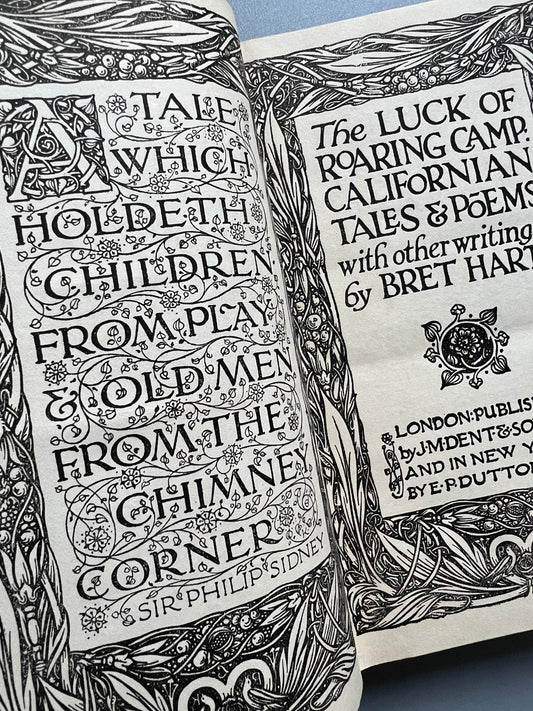 A TALE
WHICH
HOLDETH
CHILDREN
FROM PLAY
& OLD MEN
FROM THE
CHIMNEY
CORNER
SIR PHILIP SIDNEY
The LUCK OF
ROARING CAMP.
CALIFORNIAN
TALES & POEMS
with other writing
by BRET HART
LONDON: PUBLIS
by J. M. DENT & SO
AND IN NEW Y
BY E. P. DUTTO